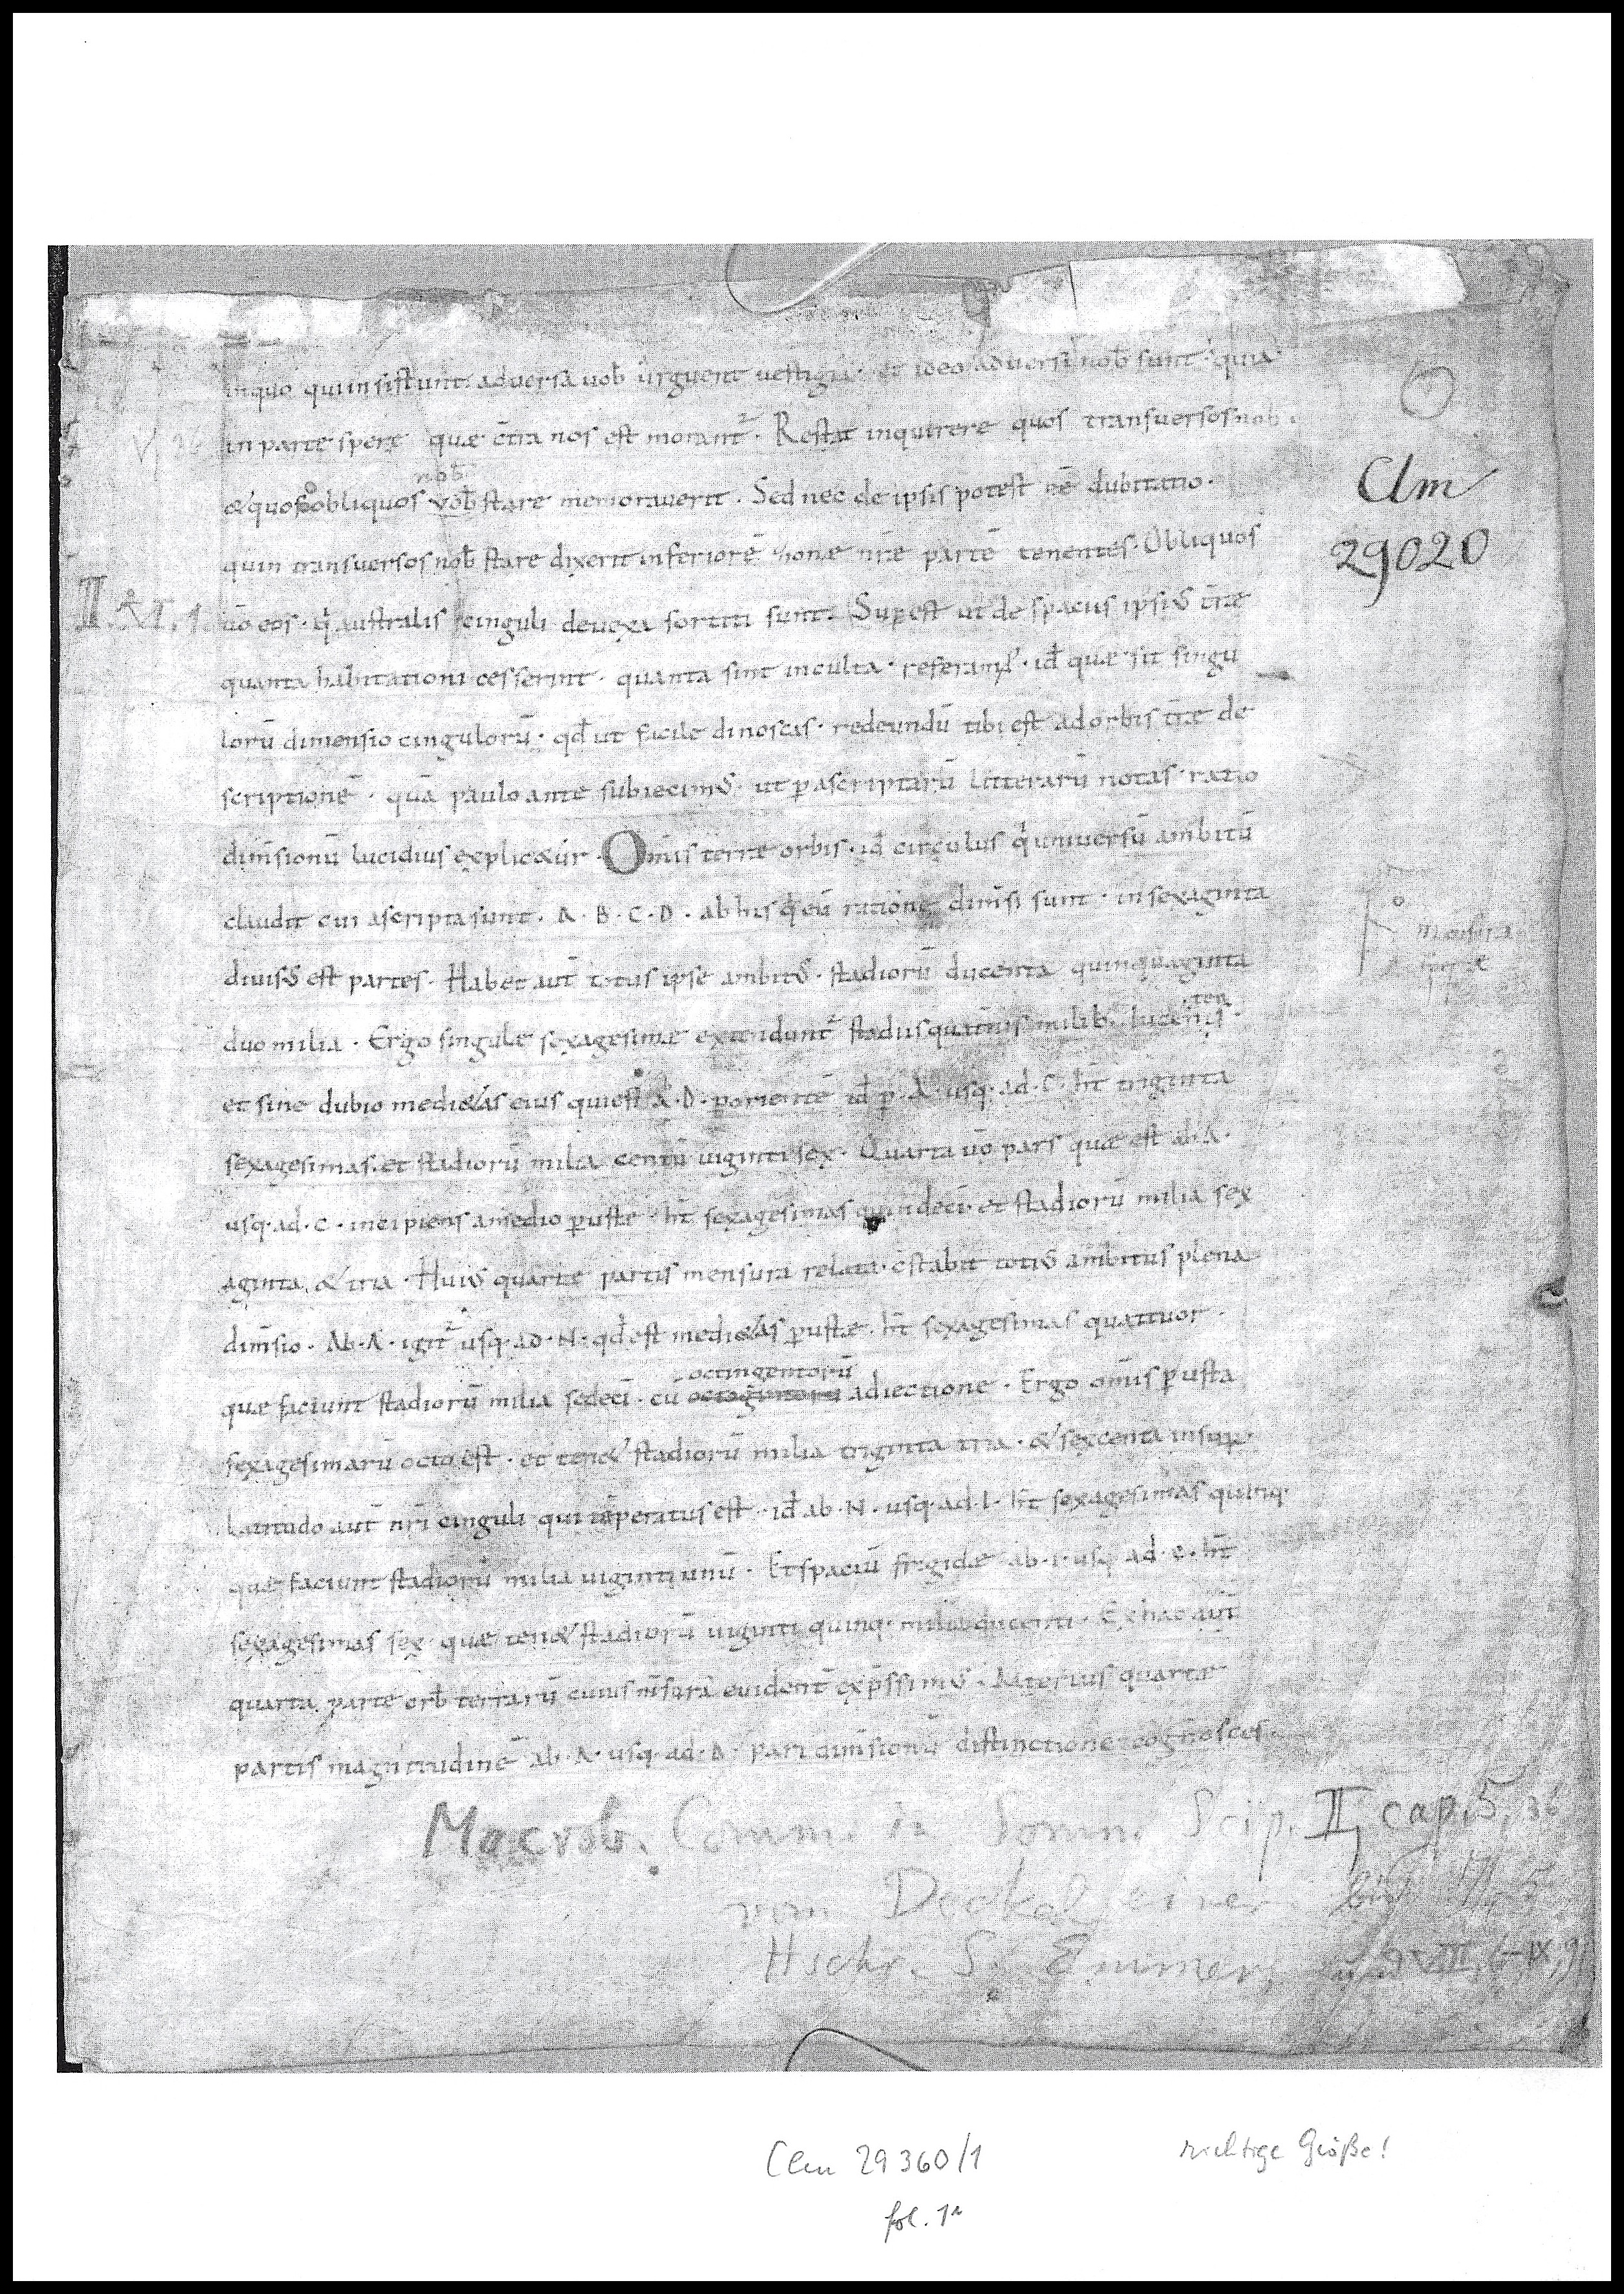 inquo quiinsistunt adversa uob̄ urguent uestigia · et ideo adversi nob̄ sunt · quia
in parte sperę quæ c̄tra nos est morant² · Restat inquirere quos transuersos nob̄ ·
&quos obliquos nob̄ vob̄ stare memoraverit · Sed nec de ipsis potest ēē dubitatio ·
quin transuersos nob̄ stare dixerit inferiorē zonæ nr̄æ partē tenentes · Obliquos
II. VI. 1. ūo eos · q̇ australis cinguli devexa sortiti sunt · Supest ut de spaciis ipsi᷒ tr̄æ
quanta habitationi cesserint · quanta sint inculta · referam᷒ · id̄ quæ sit singu
lorū dimensio cingulorū · qd̄ ut facile dinoscas · redeundū tibi est ad orbis tr̄æ de
scriptionē · quā paulo ante subiecim᷒ · ut ꝑ ascriptarū litterarū notas ratio
dim̄sionū lucidius explic&ur · Om̄is terræ orbis · id̄ circulus q̇ universū ambitū
claudit cui ascripta sunt · A · B · C · D · ab his q̇ eū ratione dim̄si sunt · in sexaginta
divis᷒ est partes · Habet aut̄ totus ipse ambit᷒ · stadiorū ducenta quinquaginta
mensura
terræ
duo milia · Ergo singulę sexagesimæ extendunt² stadiis quat̄nis milib; ducenis ·
ten
et sine dubio medi&as eius qui est A · D · ꝑ orientē id̄ ꝑ · A · usq; ad · C · ht̄ triginta
sexagesimas · et stadiorū milia centū viginti sex · Quarta ūo pars quæ est ab A ·
usq; ad · C · incipiens a medio ꝑustę · ht̄ sexagesimas quindeci · et stadiorū milia sex
aginta & tria · Hui᷒ quartæ partis mensura relata · c̄stabit toti᷒ ambitus plena
dim̄sio · Ab · A · igit² usq; ad · N · qd̄ est medi&as ꝑustæ · ht̄ sexagesimas quattuor ·
octingentorū
quæ faciunt stadiorū milia sedecī · cū adiectione · Ergo om̄is ꝑusta
sexagesimarū octo est · et ten& stadiorū milia triginta tria · & sexcenta insuꝑ ·
Latitudo aut̄ nr̄i cinguli qui tēperatus est · id̄ ab · N · usq; ad · I · ht̄ sexagesimas quinq;
quæ faciunt stadiorū milia viginti unū · Et spaciū frigidæ ab · I · usq; ad · C · ht̄
sexagesimas sex · quæ ten& stadiorū viginti quinq; milia ducenti · Ex hac aut̄
quarta parte orb̄ terrarū cuius m̄surā evident̄ exp̄ssim᷒ · Alterius quartæ
partis magnitudinē ab · A · usq; ad · D · pari dim̄sionū distinctione cognosces
Clm
29020
Macrob. Comm. in Somn. Scip. II, cap. 5, 36
vom Deckel einer bis VI, 5
Hschr. S. Emmer. VIII, 6–IX, 9
Clm 29360/1
richtige Größe!
fol. 1r